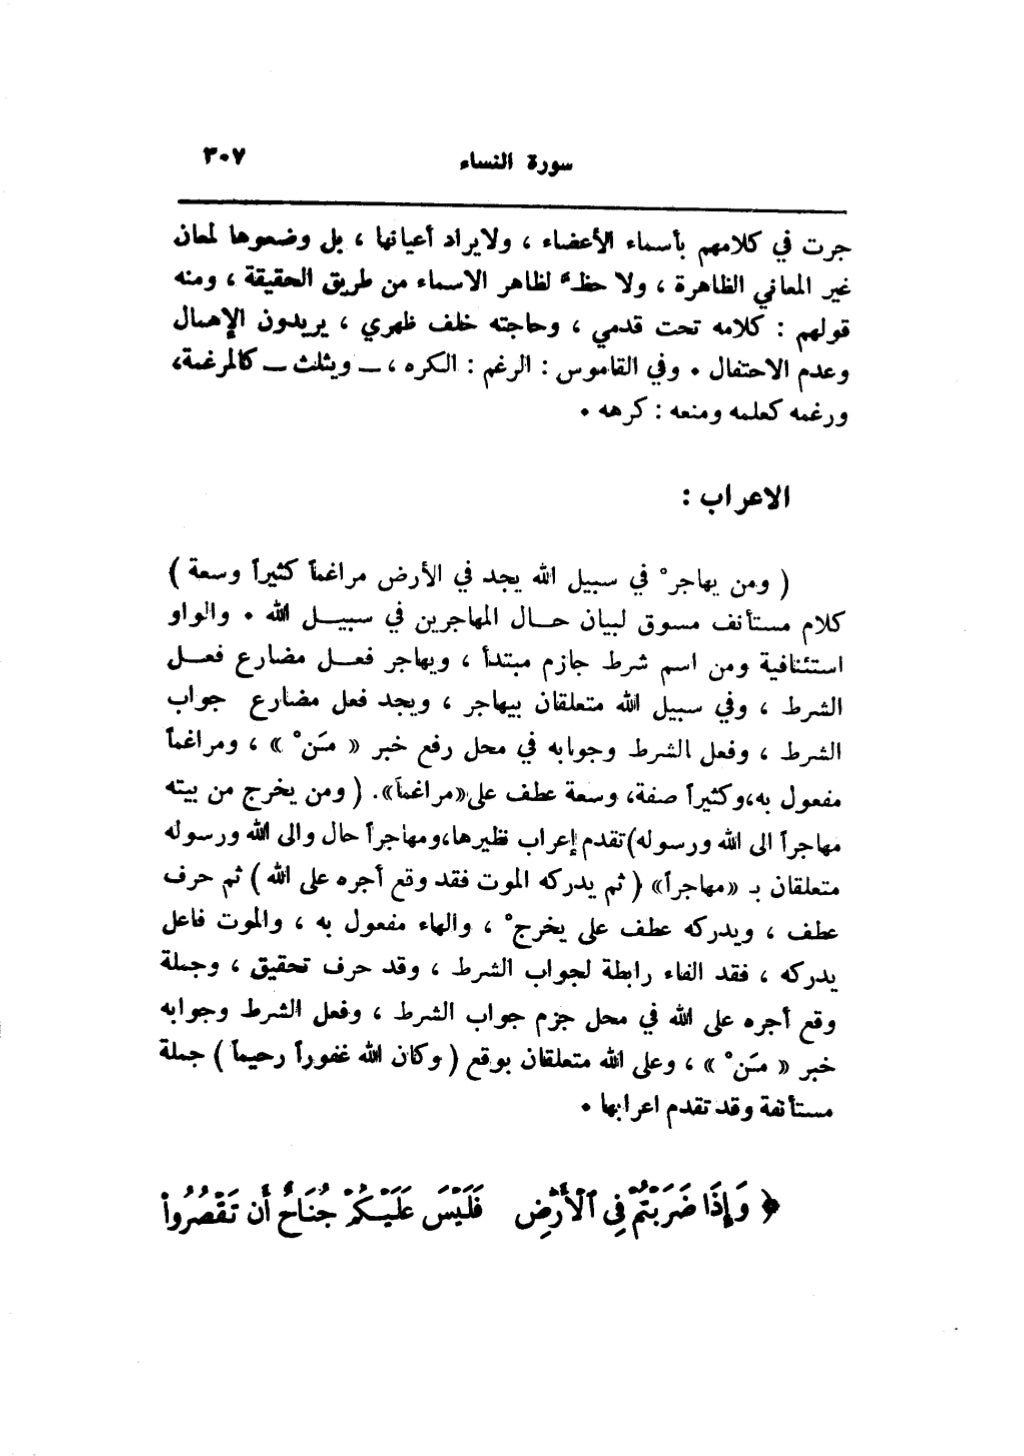 سورة النساء ٣٠٧
جرت في كلامهم بأسماء الأعضاء ، ولايراد أعيانها ، بل وضعوها لمعان
غير المعاني الظاهرة ، ولا حظّ لظاهر الاسماء من طريق الحقيقة ، ومنه
قولهم : كلامه تحت قدمي ، وحاجته خلف ظهري ، يريدون الإهمال
وعدم الاحتفال . وفي القاموس : الرغم : الكره ، ــ ويثلث ــ كالمرغمة،
ورغمه كعلمه ومنعه : كرهه .
الاعراب :
( ومن يهاجرْ في سبيل الله يجد في الأرض مراغماً كثيراً وسعة )
كلام مستأنف مسوق لبيان حال المهاجرين في سبيل الله . والواو
استئنافية ومن اسم شرط جازم مبتدأ ، ويهاجر فعل مضارع فعل
الشرط ، وفي سبيل الله متعلقان بيهاجر ، ويجد فعل مضارع جواب
الشرط ، وفعل الشرط وجوابه في محل رفع خبر « مَنْ » ، ومراغماً
مفعول به،وكثيراً صفة، وسعة عطف على«مراغماً». ( ومن يخرج من بيته
مهاجراً الى الله ورسوله)تقدم إعراب نظيرها،ومهاجراً حال والى الله ورسوله
متعلقان بـ «مهاجراً» ( ثم يدركه الموت فقد وقع أجره على الله ) ثم حرف
عطف ، ويدركه عطف على يخرجْ ، والهاء مفعول به ، والموت فاعل
يدركه ، فقد الفاء رابطة لجواب الشرط ، وقد حرف تحقيق ، وجملة
وقع أجره على الله في محل جزم جواب الشرط ، وفعل الشرط وجوابه
خبر « مَنْ » ، وعلى الله متعلقان بوقع ( وكان الله غفوراً رحيماً ) جملة
مستأنفة وقد تقدم اعرابها .
﴿ وَإِذَا ضَرَبْتُمْ فِي ٱلْأَرْضِ فَلَيْسَ عَلَيْكُمْ جُنَاحٌ أَن تَقْصُرُوا۟